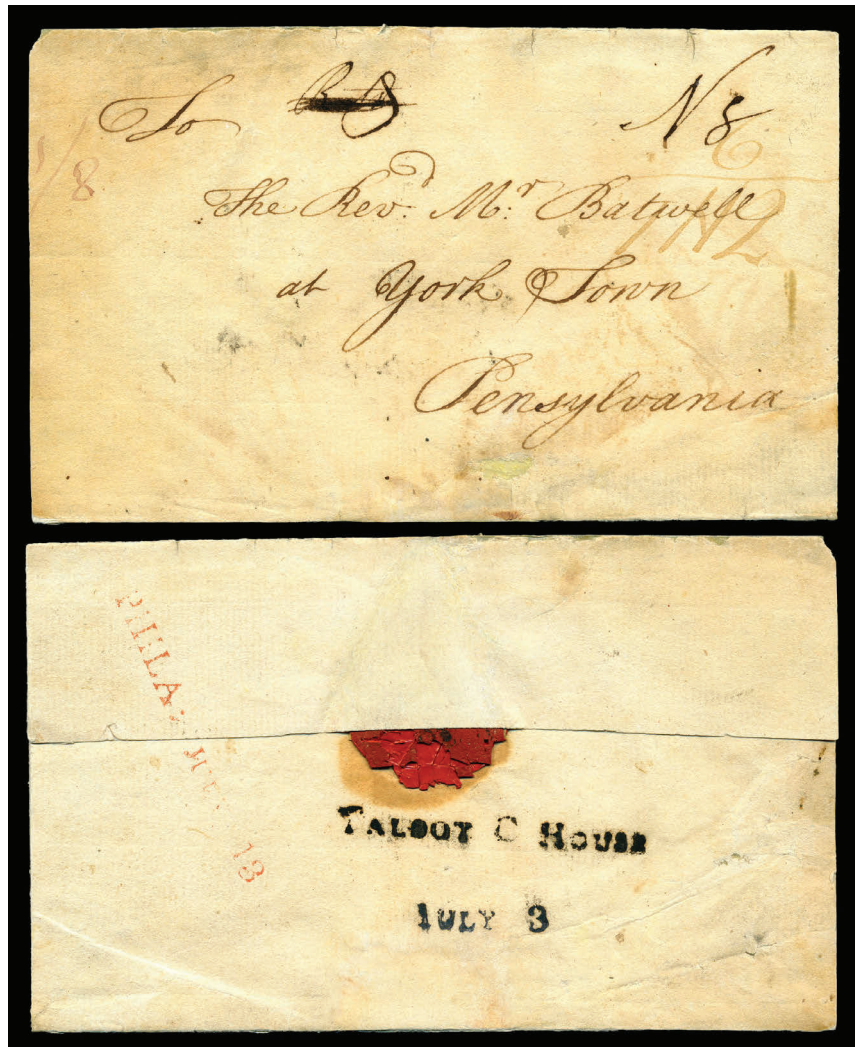 To N 8
1/8
The Rev.d M.r Batwell
at York Town
Pensylvania
PHILA
13
TALBOT C HOUSE
IULY 3